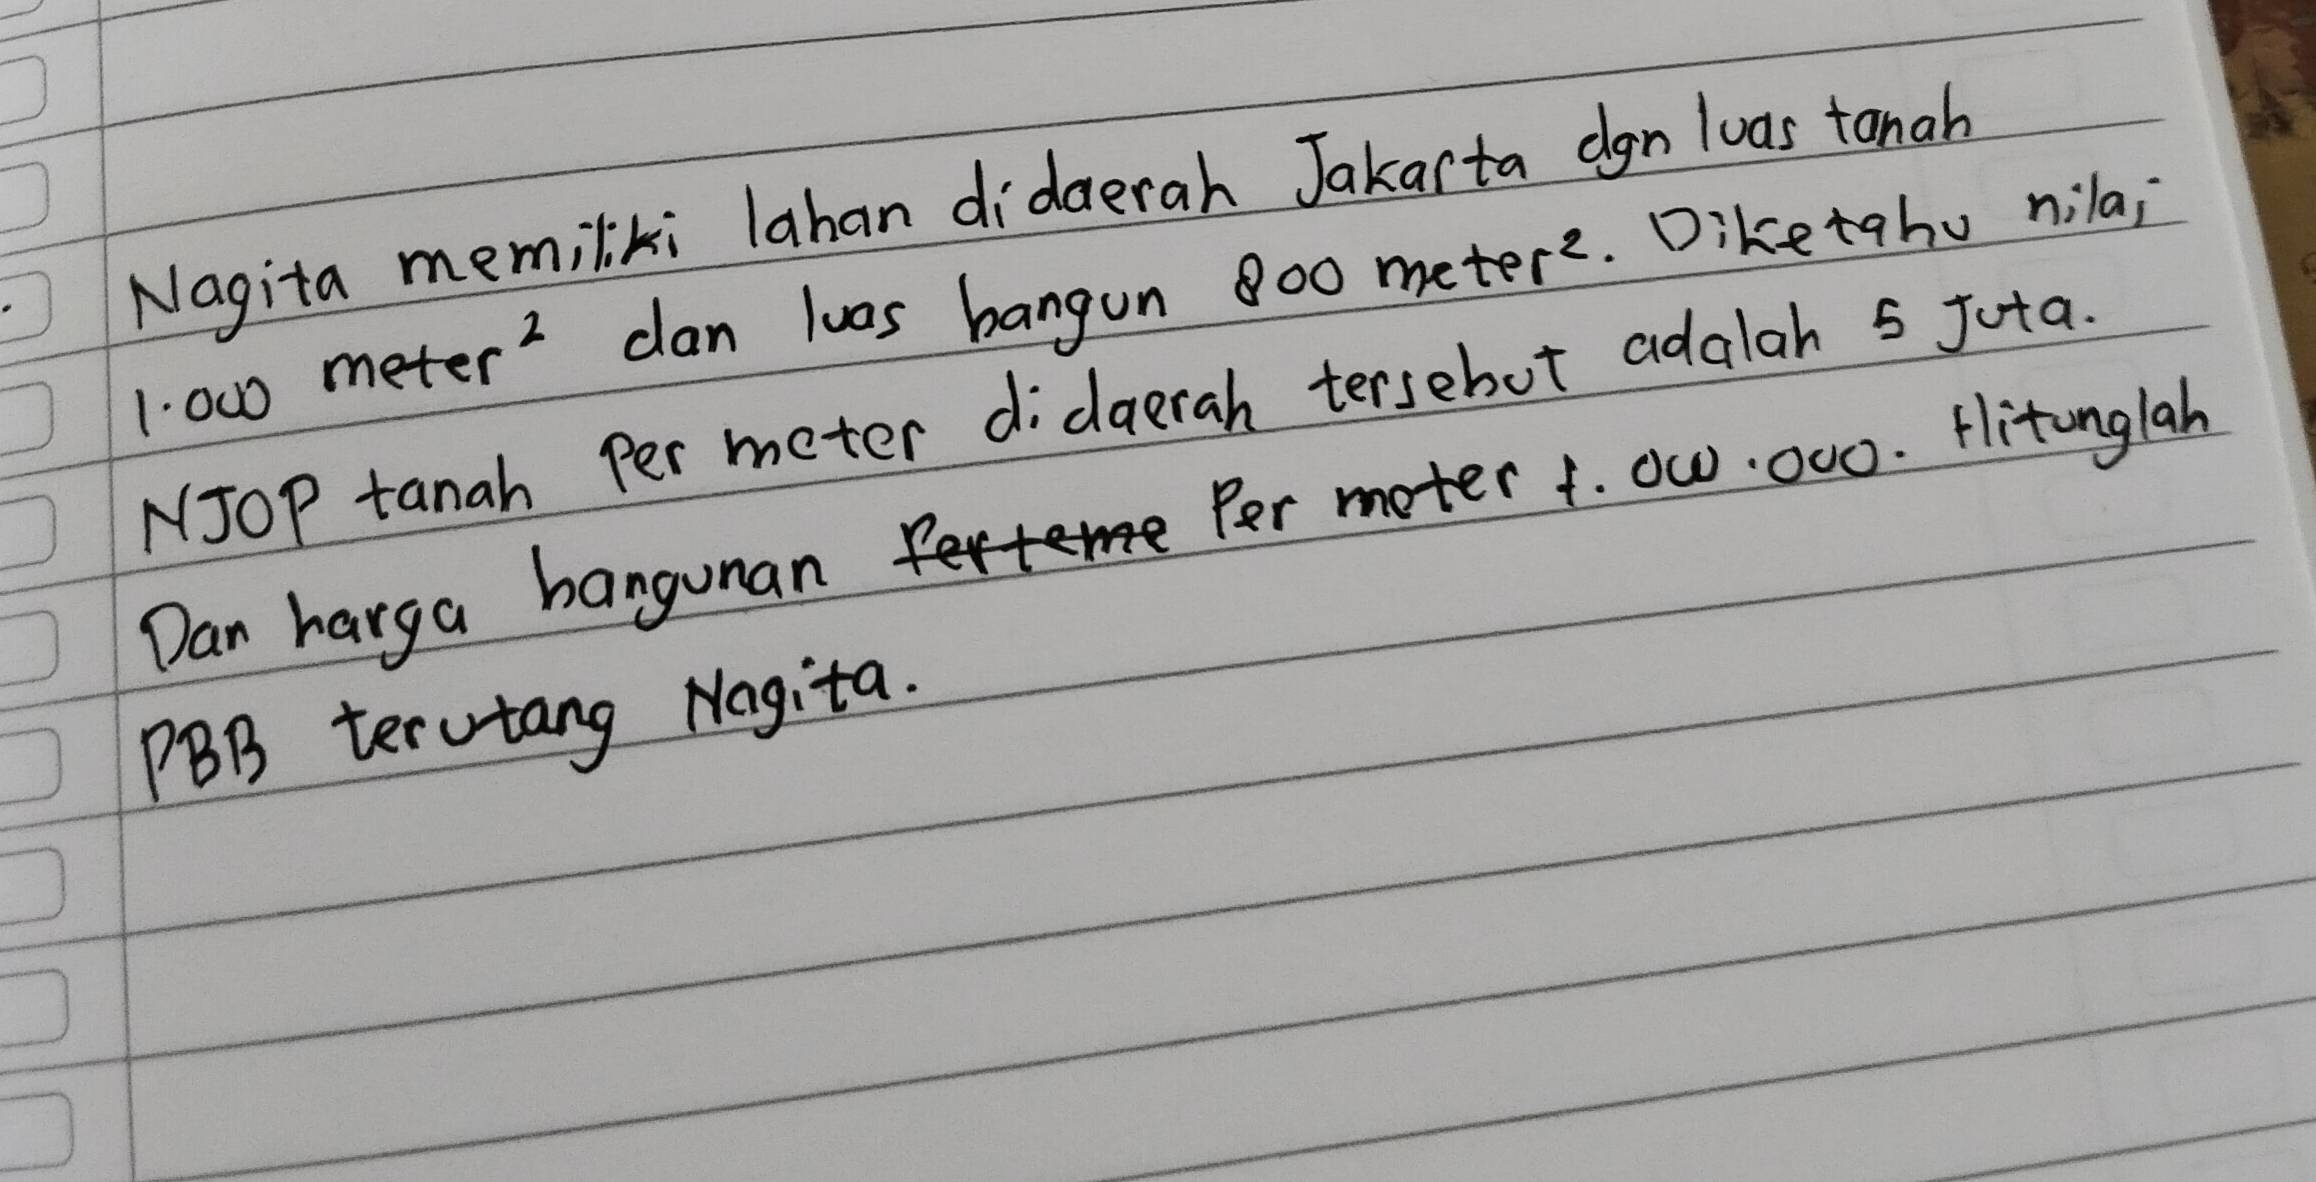 Nagita memiliki lahan didaerah Jakarta dgn luas tanah
1.000 meter² dan luas bangun 800 meter². Diketahu nilai
NJOP tanah Per meter didaerah tersebut adalah 5 Juta.
Dan harga bangunan Perteme Per meter 1.000.000. Hitunglah
PBB terutang Nagita.